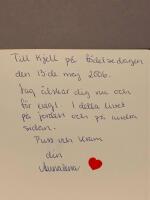 Till Kjell på födelsedagen
den 13 de maj 2006.
Jag älskar dig nu och
för evigt. I detta livet
på jorden och på andra
sidan.
Puss och Kram
din